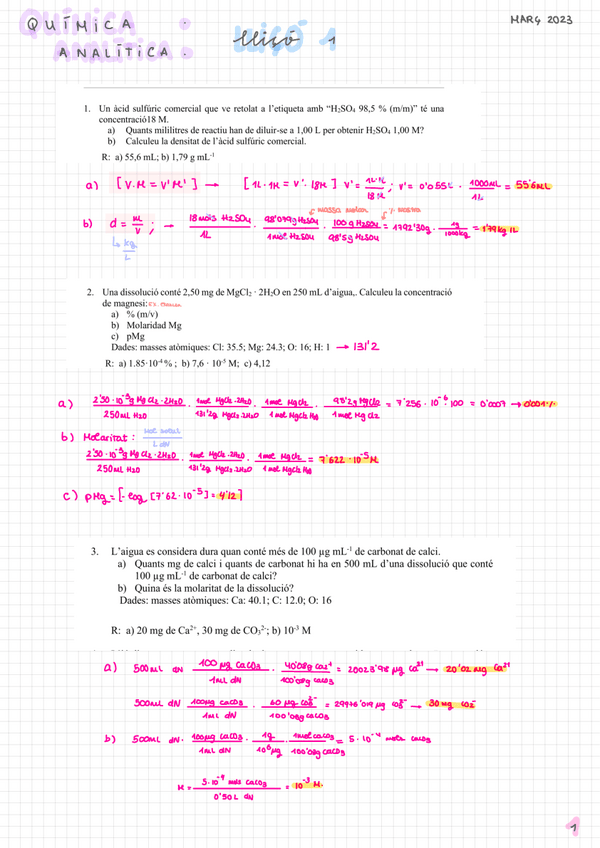 QUÍMICA
ANALÍTICA.
lliçó 1
MARÇ 2023
1. Un àcid sulfúric comercial que ve retolat a l'etiqueta amb "H₂SO₄ 98,5 % (m/m)" té una
concentració18 M.
a) Quants mil·lilitres de reactiu han de diluir-se a 1,00 L per obtenir H₂SO₄ 1,00 M?
b) Calculeu la densitat de l'àcid sulfúric comercial.
R: a) 55,6 mL; b) 1,79 g mL⁻¹
a) [V·M = V'M'] → [1L·1M = V'·18M] V' = 1L·1L / 18M ; V' = 0'055L · 1000mL / 1L = 55'6mL
massa molar % massa
b) d = m / V ; → 18 mols H₂SO₄ / 1L · 98'079g H₂SO₄ / 1 mol H₂SO₄ · 100g H₂SO₄ / 98'5g H₂SO₄ = 1792'30g · 1g / 1000kg = 1'79 kg/L
↳ kg / L
2. Una dissolució conté 2,50 mg de MgCl₂ · 2H₂O en 250 mL d'aigua,. Calculeu la concentració
de magnesi:
a) % (m/v)
b) Molaridad Mg
c) pMg
Dades: masses atòmiques: Cl: 35.5; Mg: 24.3; O: 16; H: 1 → 131'2
R: a) 1.85·10⁻⁴ % ; b) 7,6 · 10⁻⁵ M; c) 4,12
a) 2'50·10⁻³g MgCl₂·2H₂O / 250mL H₂O · 1mol MgCl₂·2H₂O / 131'2g MgCl₂·2H₂O · 1mol MgCl₂ / 1mol MgCl₂ · 95'2g MgCl₂ / 1mol MgCl₂ = 7'256·10⁻⁶·100 = 0'0007 → 0'001%
b) Molaritat: mol solut / L dN
2'50·10⁻³g MgCl₂·2H₂O / 250mL H₂O · 1mol MgCl₂·2H₂O / 131'2g MgCl₂·2H₂O · 1mol MgCl₂ / 1mol MgCl₂ = 7'622·10⁻⁵ M
c) pMg = [-log [7'62·10⁻⁵] = 4'12]
3. L'aigua es considera dura quan conté més de 100 µg mL⁻¹ de carbonat de calci.
a) Quants mg de calci i quants de carbonat hi ha en 500 mL d'una dissolució que conté
100 µg mL⁻¹ de carbonat de calci?
b) Quina és la molaritat de la dissolució?
Dades: masses atòmiques: Ca: 40.1; C: 12.0; O: 16
R: a) 20 mg de Ca²⁺, 30 mg de CO₃²⁻; b) 10⁻³ M
a) 500mL dN 100µg CaCO₃ / 1mL dN · 40'08g Ca²⁺ / 100'08g CaCO₃ = 20023'98 µg Ca²⁺ → 20'02 mg Ca²⁺
500mL dN 100µg CaCO₃ / 1mL dN · 60µg CO₃²⁻ / 100'08g CaCO₃ = 29976'019 µg CO₃²⁻ → 30 mg CO₃²⁻
b) 500mL dN · 100µg CaCO₃ / 1mL dN · 1g / 10⁶µg · 1mol CaCO₃ / 100'08g CaCO₃ = 5·10⁻⁴ mols CaCO₃
M = 5·10⁻⁴ mols CaCO₃ / 0'50L dN = 10⁻³ M.
1